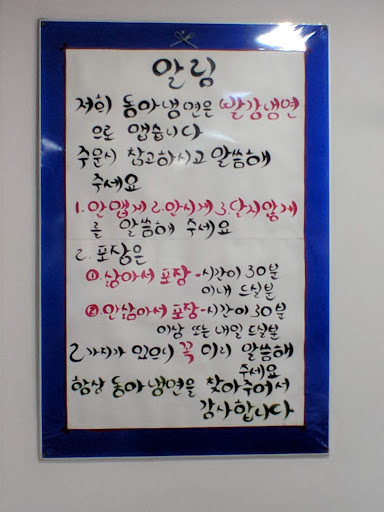 알림
저희 동아냉면은 빨강냉면
으로 맵습니다
주문시 참고하시고 말씀해
주세요
1. 안맵게 2. 안시게 3. 달지않게
를 말씀해 주세요
2. 포장은
① 삶아서 포장 - 시간이 30분
이내 드실분
② 안삶아서 포장 - 시간이 30분
이상 또는 내일 드실분
2가지가 있으니 꼭 미리 말씀해
주세요
항상 동아냉면을 찾아주어서
감사합니다